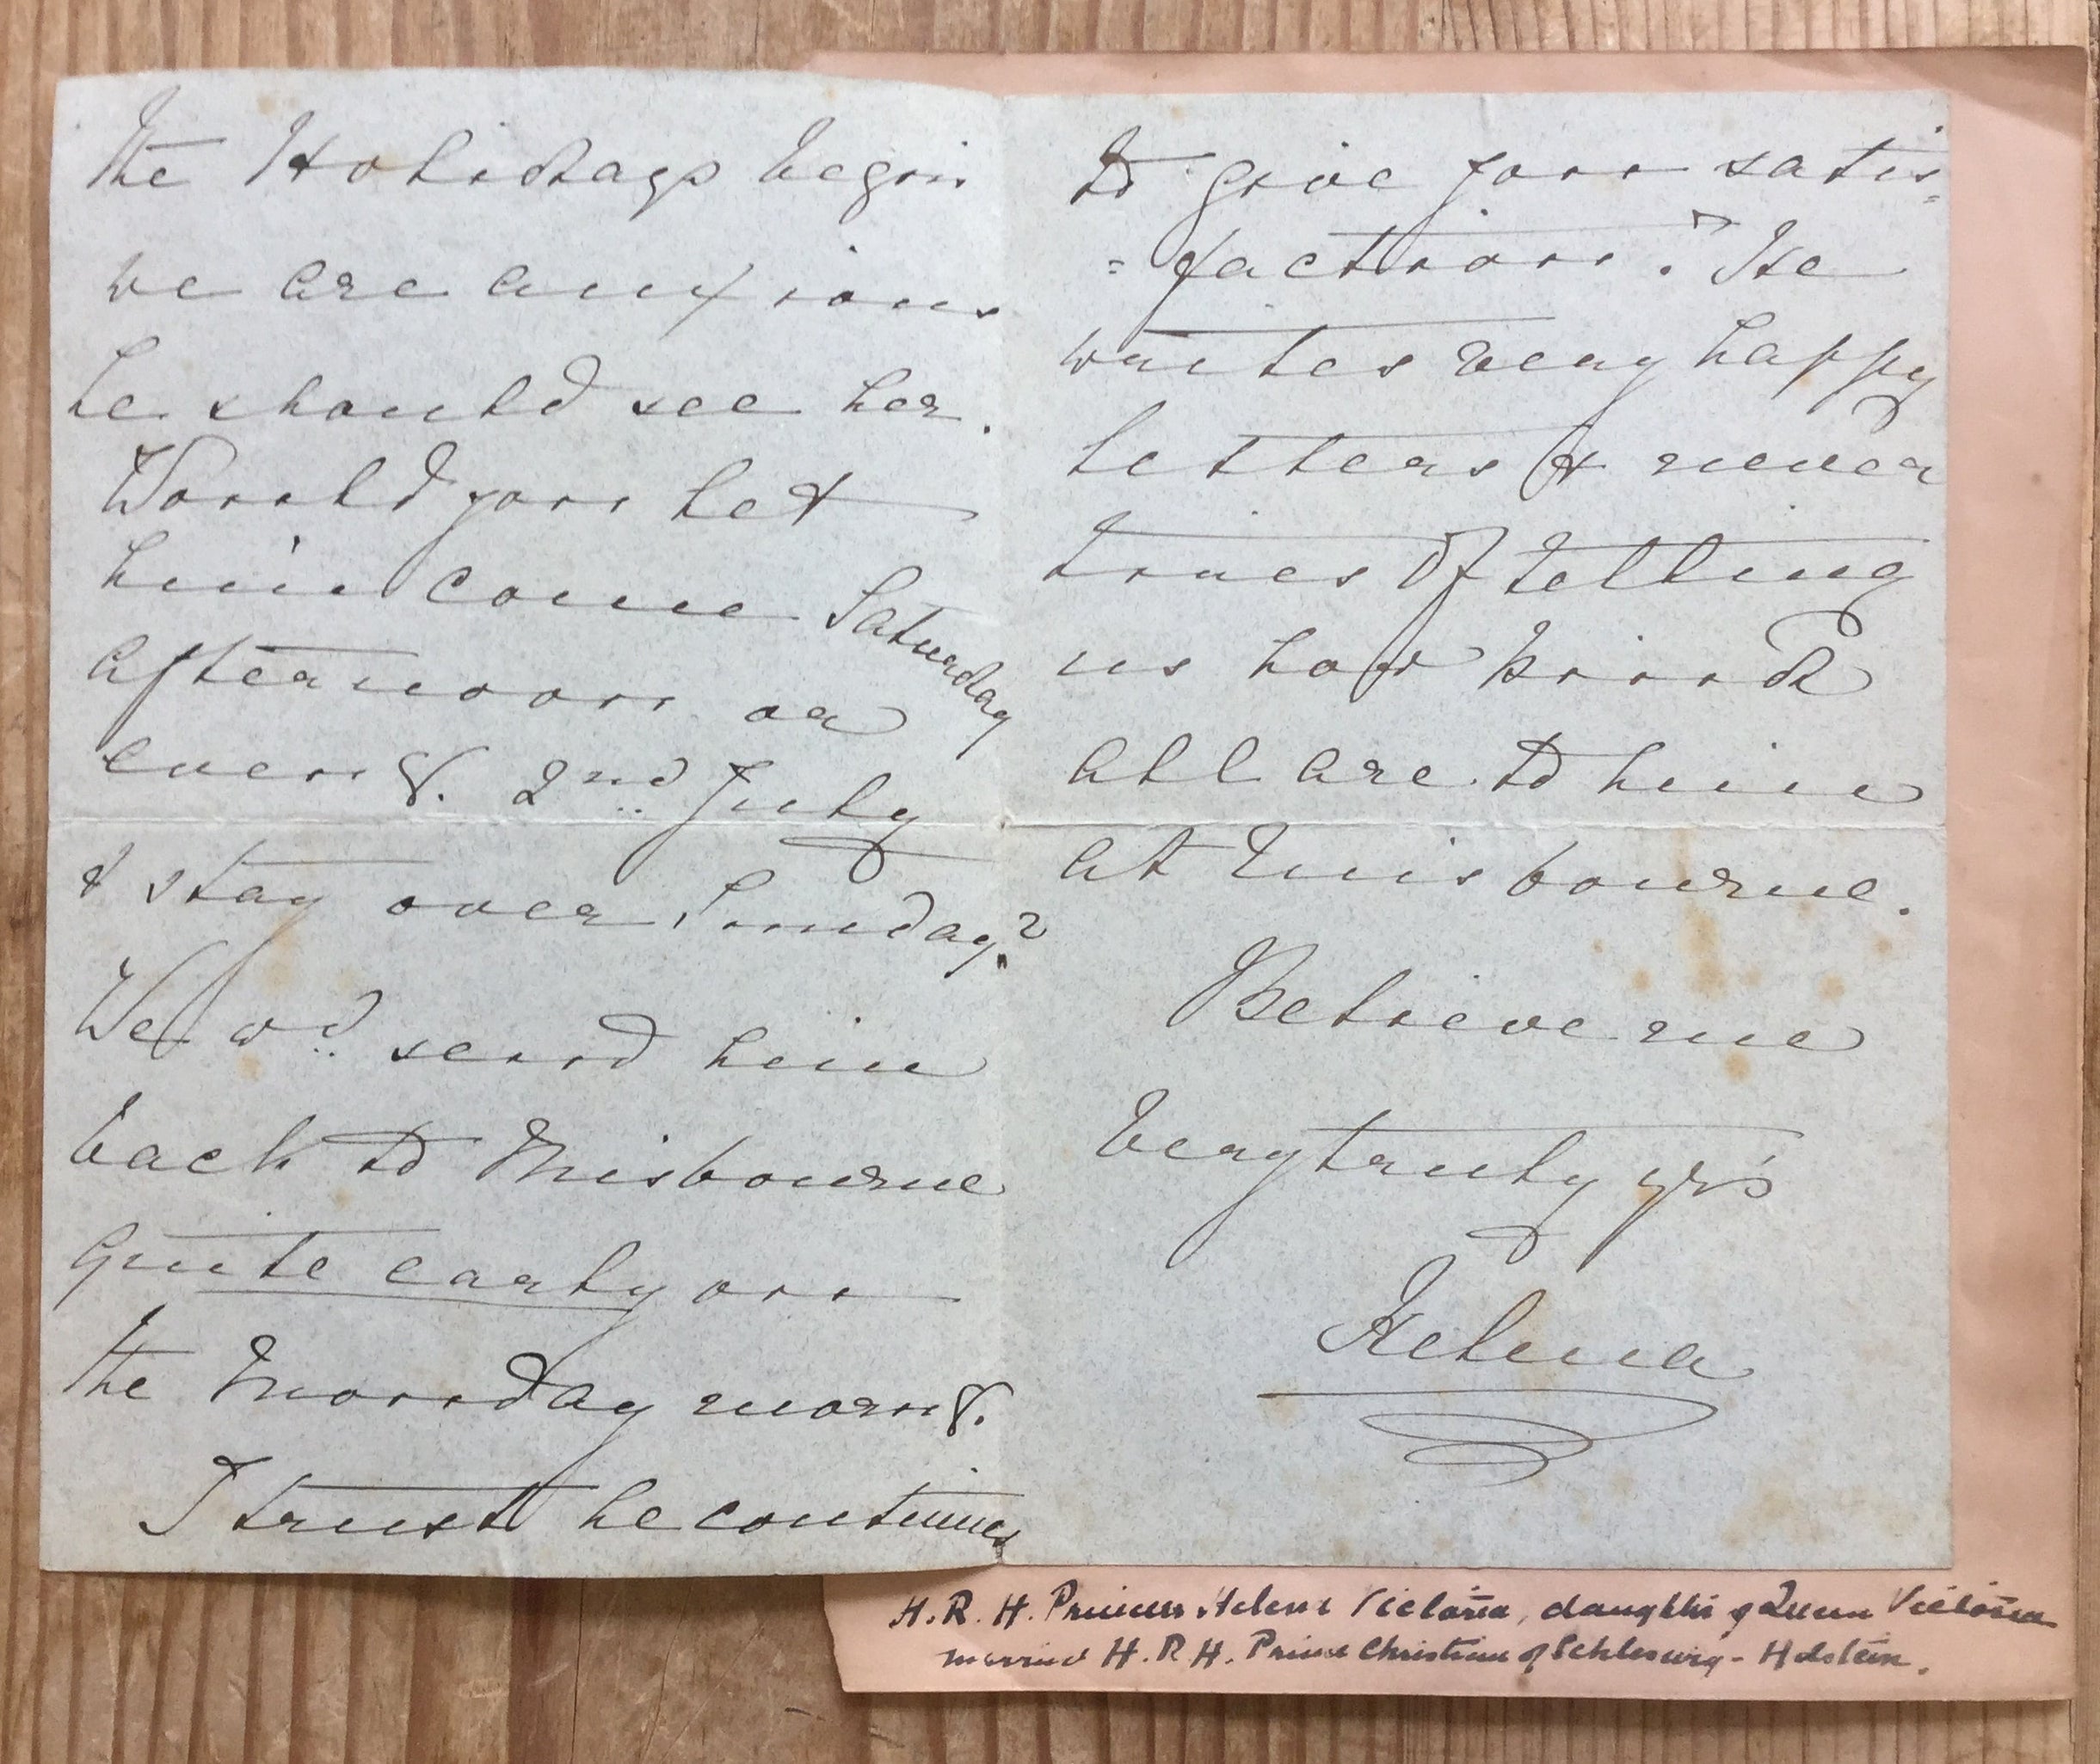 the Holidays begin
we are anxious
he should see her.
Would you let
him come Saturday
afternoon or
eveng. 2nd July
& stay over Sunday?
We wd. send him
back to Misbourne
quite early on
the Monday morng.
I trust he continues
to give you satis=
=faction. He
writes very happy
letters & never
tires of telling
us how kind
all are to him
at Misbourne.
Believe me
very truly yrs
Helena
H.R.H. Princess Helena Victoria, daughter of Queen Victoria
married H.R.H. Prince Christian of Schleswig-Holstein.